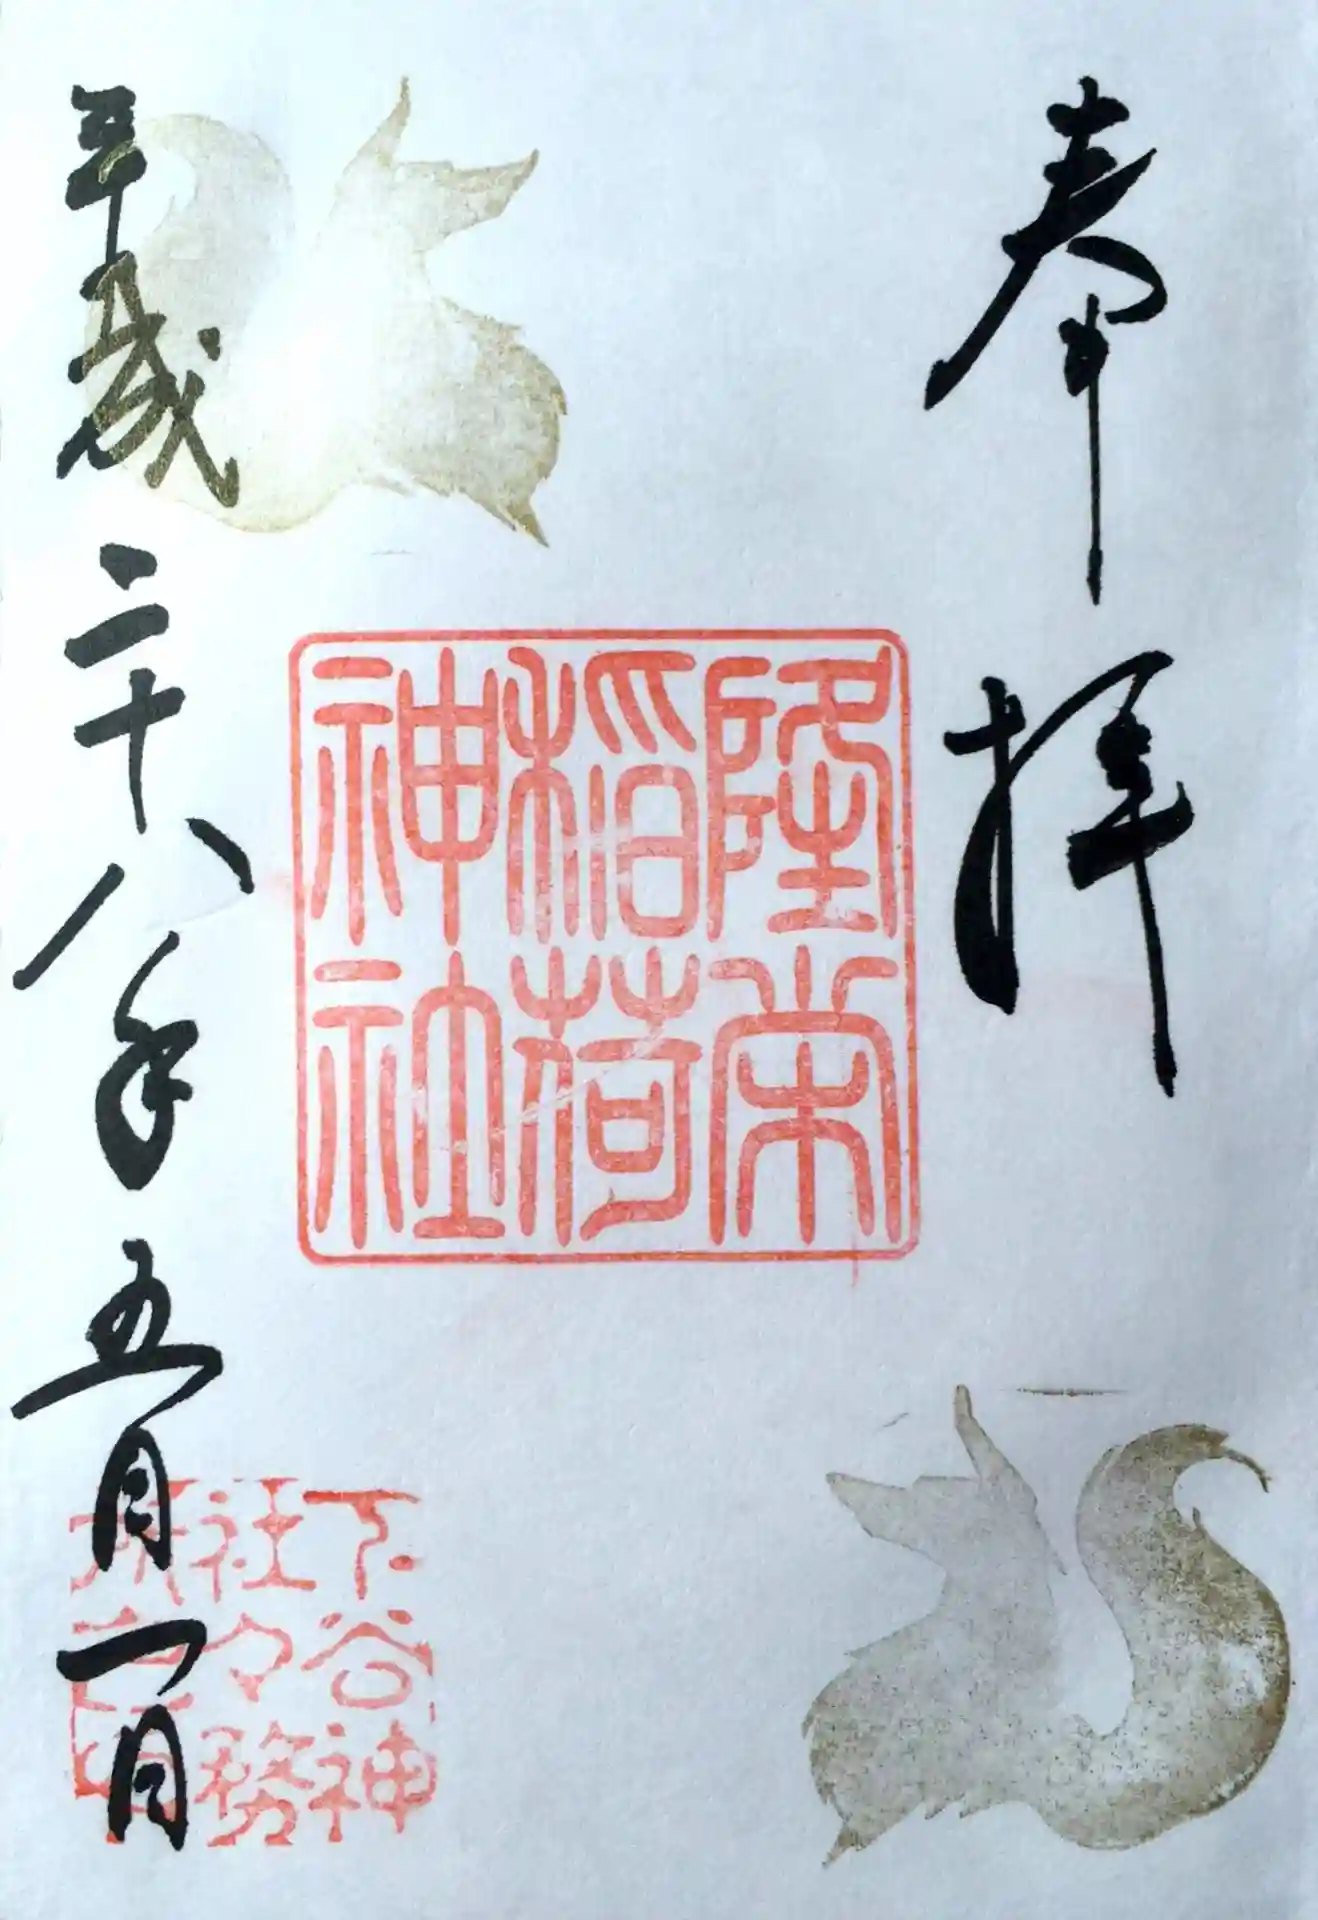 奉拝
隆栄
稲荷
神社
平成二十八年五月一日
下谷神
社々務
所之印